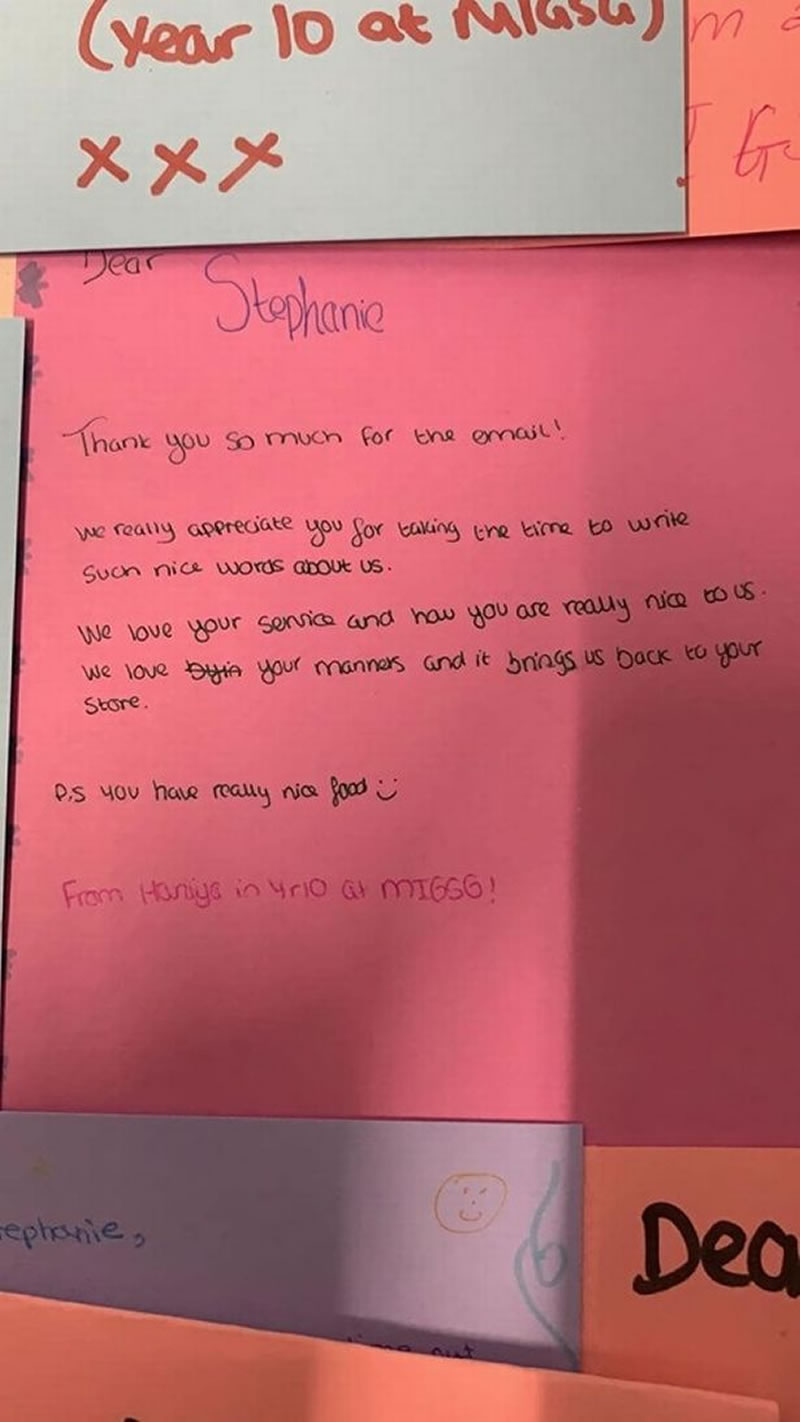 (Year 10 at MIGSG)
x x x
Dear
Stephanie
Thank you so much for the email!
We really appreciate you for taking the time to write
such nice words about us.
We love your service and how you are really nice to us.
We love your manners and it brings us back to your
store.
P.S you have really nice food :)
From Haniya in yr10 at MIGSG!
ephanie,
Dea
time out